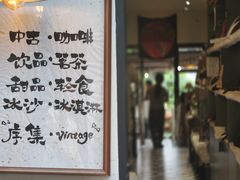 中古·咖啡
饮品·茗茶
甜品·轻食
冰沙·冰淇淋
序集·vintage